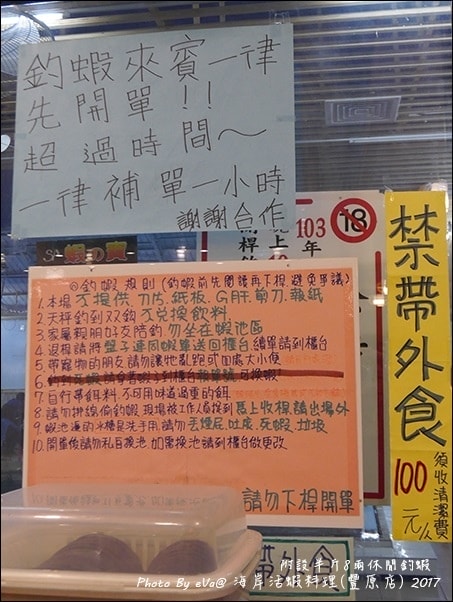 釣蝦來賓一律
先開單!!
超過時間~
一律補單一小時
謝謝合作
蝦の寶
晚上
103
年
18
◎釣蝦規則(釣蝦前先閱讀再下桿,避免爭議)
1.本場不提供刀片,紙板,G肝,剪刀,報紙
2.天秤釣到双釣不兌換飲料
3.家屬親朋好友陪釣勿坐在蝦池區
4.退桿請將盤子連同蝦單送回櫃台,續單請到櫃台
5.帶寵物的朋友請勿讓牠亂跑或如處大小便
7.自行帶餌料,不可用味道過重的餌
8.請勿排線偷釣蝦,現場被工作人員找到馬上收桿,請出場外
9.蝦池邊的水桶是洗手用,請勿丟煙尼,吐痰,死蝦,垃圾
10.開單後請勿私自換池,如需換池請到櫃台做更改
請勿下桿開單
禁帶外食
100
元/人
須收清潔費
帶外食
附設半斤8兩休閒釣蝦
Photo By eVa@ 海岸活蝦料理(豐原店) 2017